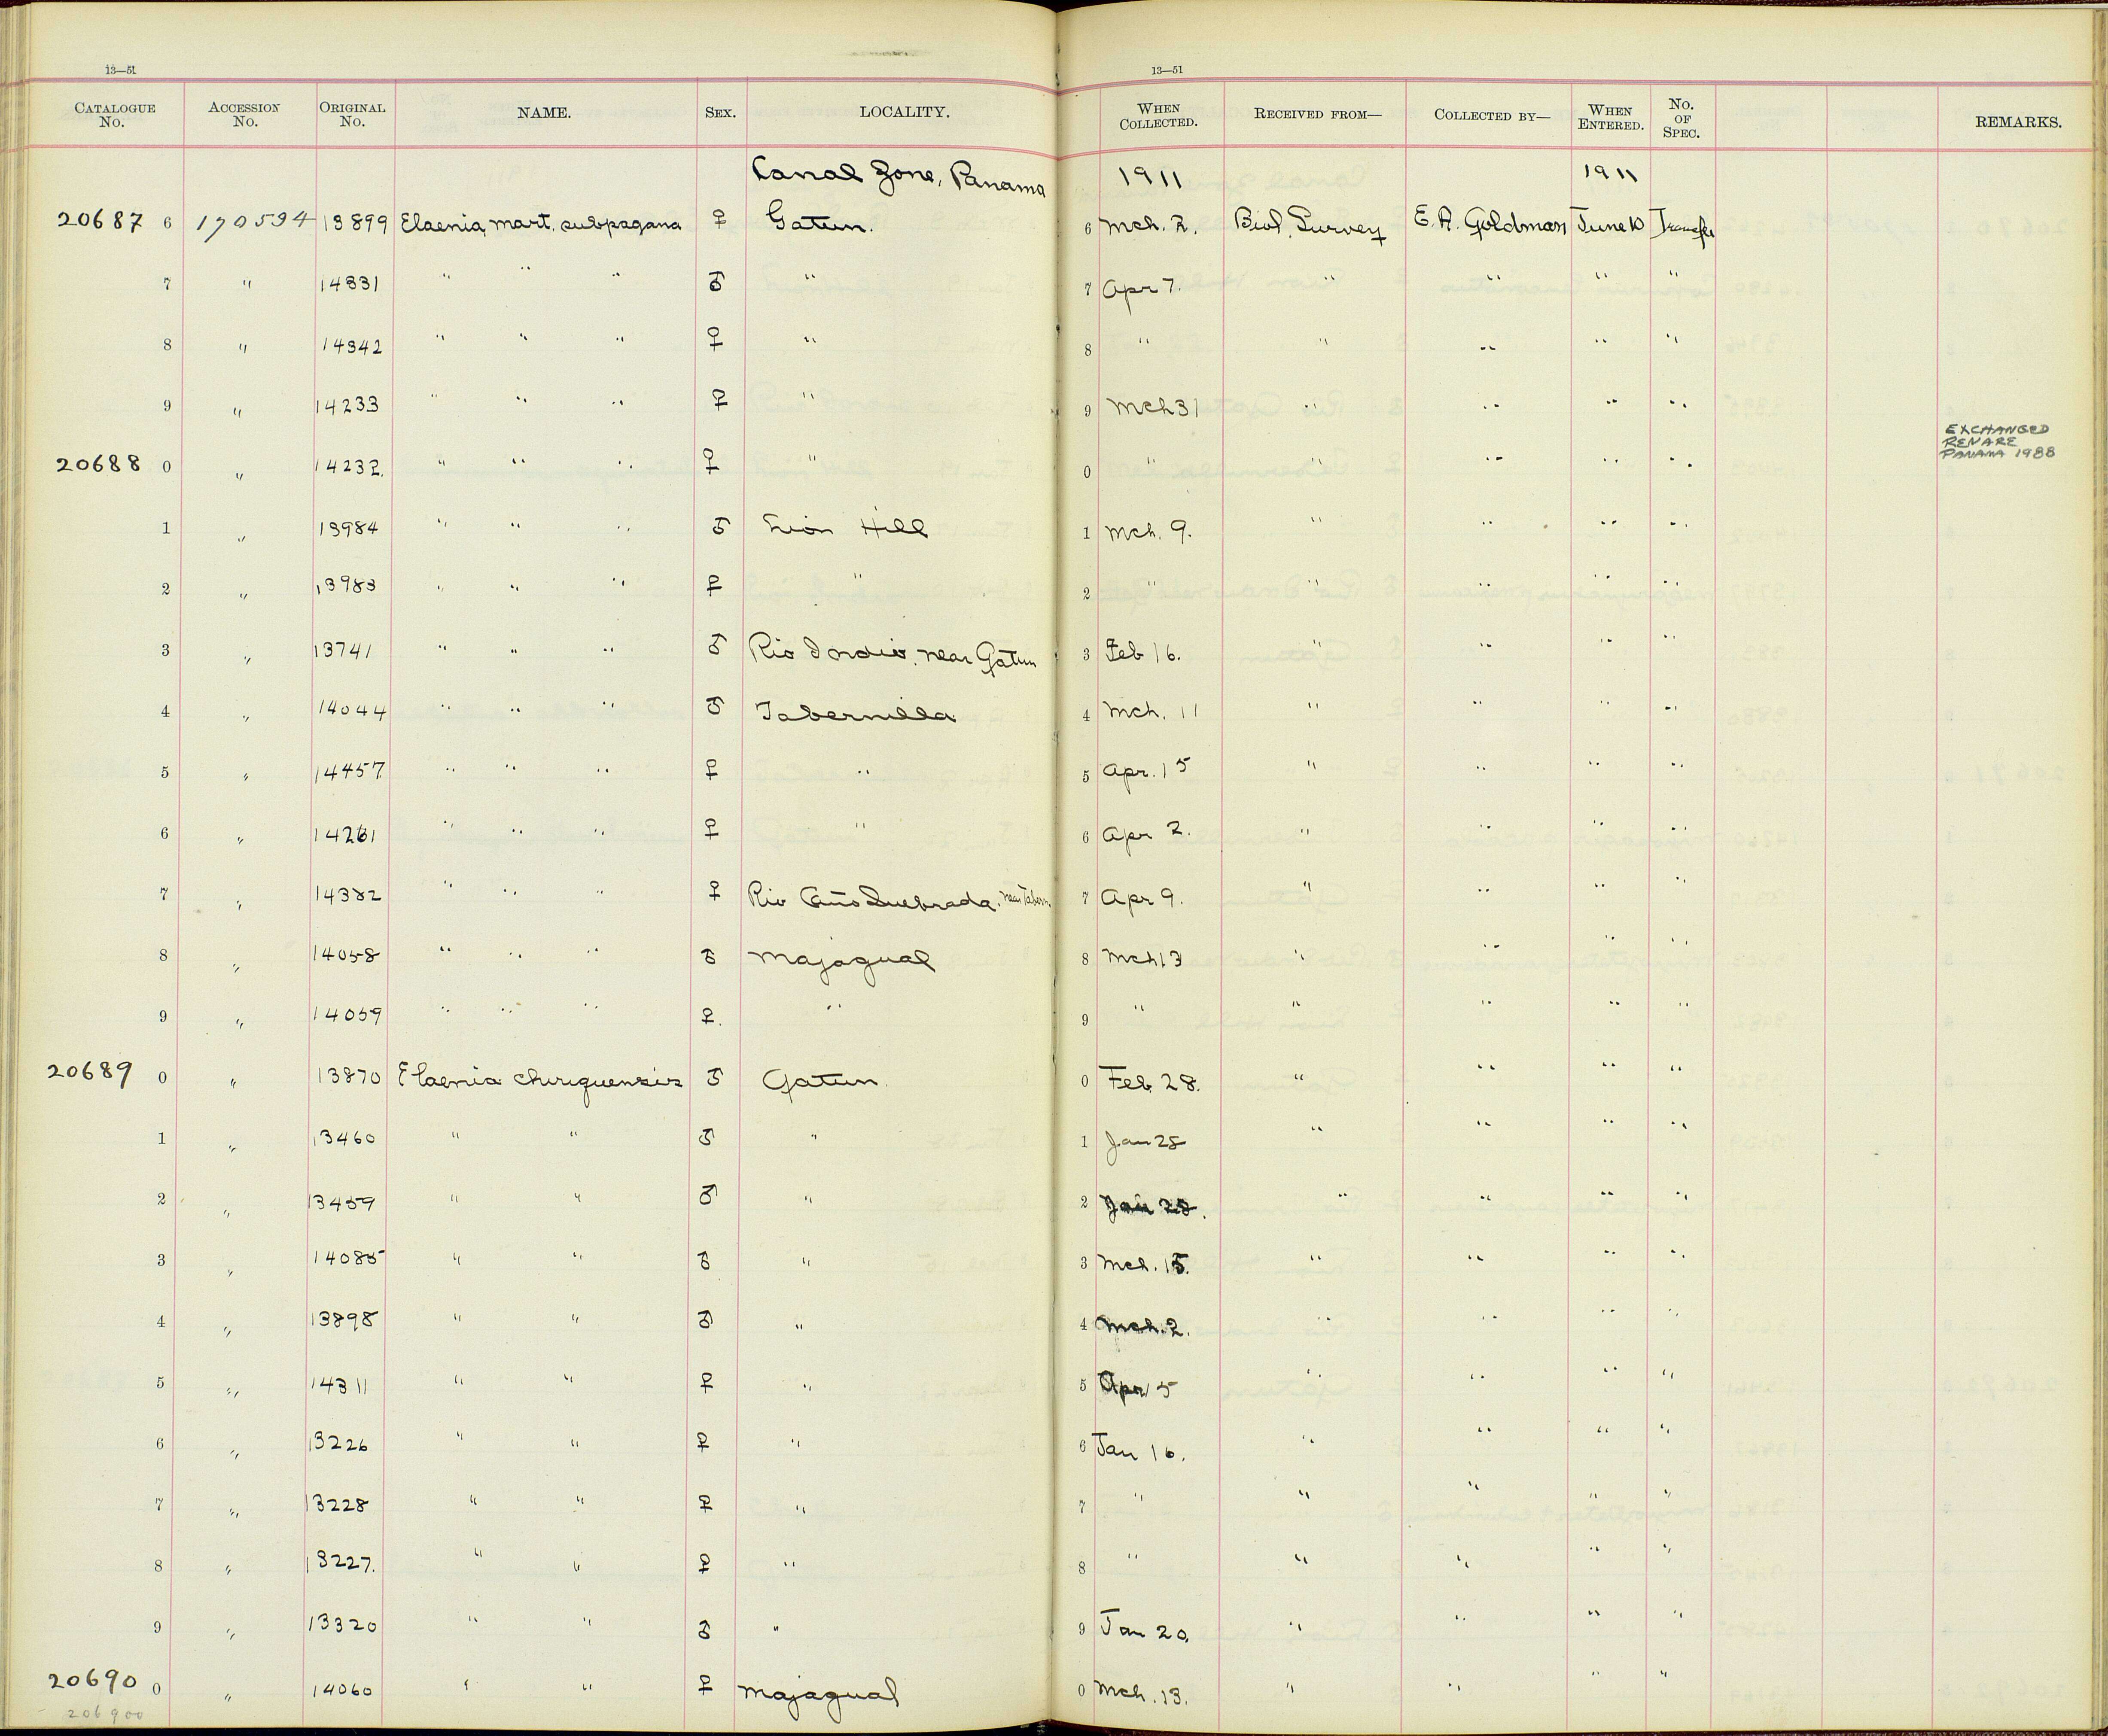 13—51 13—51
CATALOGUE No. ACCESSION No. ORIGINAL No. NAME. SEX. LOCALITY. WHEN COLLECTED. RECEIVED FROM— COLLECTED BY— WHEN ENTERED. No. OF SPEC. REMARKS.
Canal Zone, Panama 1911 1911
20687 6 170594 13899 Elaenia mart. subpagana ♀ Gatun. 6 Mch. 2. Biol. Survey E. A. Goldman June 10 Transfer
7 " 14331 " " " ♂ " 7 Apr 7. " " " "
8 " 14342 " " " ♀ " 8 " " " " "
9 " 14233 " " " ♀ " 9 Mch 31 " " " "
20688 0 " 14232. " " " ♀ " 0 " " " " " EXCHANGED RENARE PANAMA 1988
1 " 13984 " " " ♂ Lion Hill 1 Mch. 9. " " " "
2 " 13983 " " " ♀ " 2 " " " " "
3 " 13741 " " " ♂ Rio Indio, near Gatun 3 Feb 16. " " " "
4 " 14044 " " " ♂ Tabernilla 4 Mch. 11 " " " "
5 " 14457 " " " ♀ " 5 Apr. 15 " " " "
6 " 14261 " " " ♀ " 6 Apr 2. " " " "
7 " 14382 " " " ♀ Rio Caño Quebrada, near Tabern. 7 Apr 9. " " " "
8 " 14058 " " " ♂ Majagual 8 Mch 13 " " " "
9 " 14059 " " " ♀. " 9 " " " " "
20689 0 " 13870 Elaenia chiriquensis ♂ Gatun 0 Feb. 28. " " " "
1 " 13460 " " ♂ " 1 Jan 28 " " " "
2 " 13459 " " ♂ " 2 Jan 28. " " " "
3 " 14085 " " ♂ " 3 Mch. 15. " " " "
4 " 13898 " " ♂ " 4 Mch. 2. " " " "
5 " 14311 " " ♀ " 5 Apr 5 " " " "
6 " 13226 " " ♀ " 6 Jan 16. " " " "
7 " 13228 " " ♀ " 7 " " " " "
8 " 13227. " " ♀ " 8 " " " " "
9 " 13320 " " ♂ " 9 Jan 20. " " " "
20690 0 " 14060 " " ♀ Majagual 0 Mch. 13. " " " "
206900